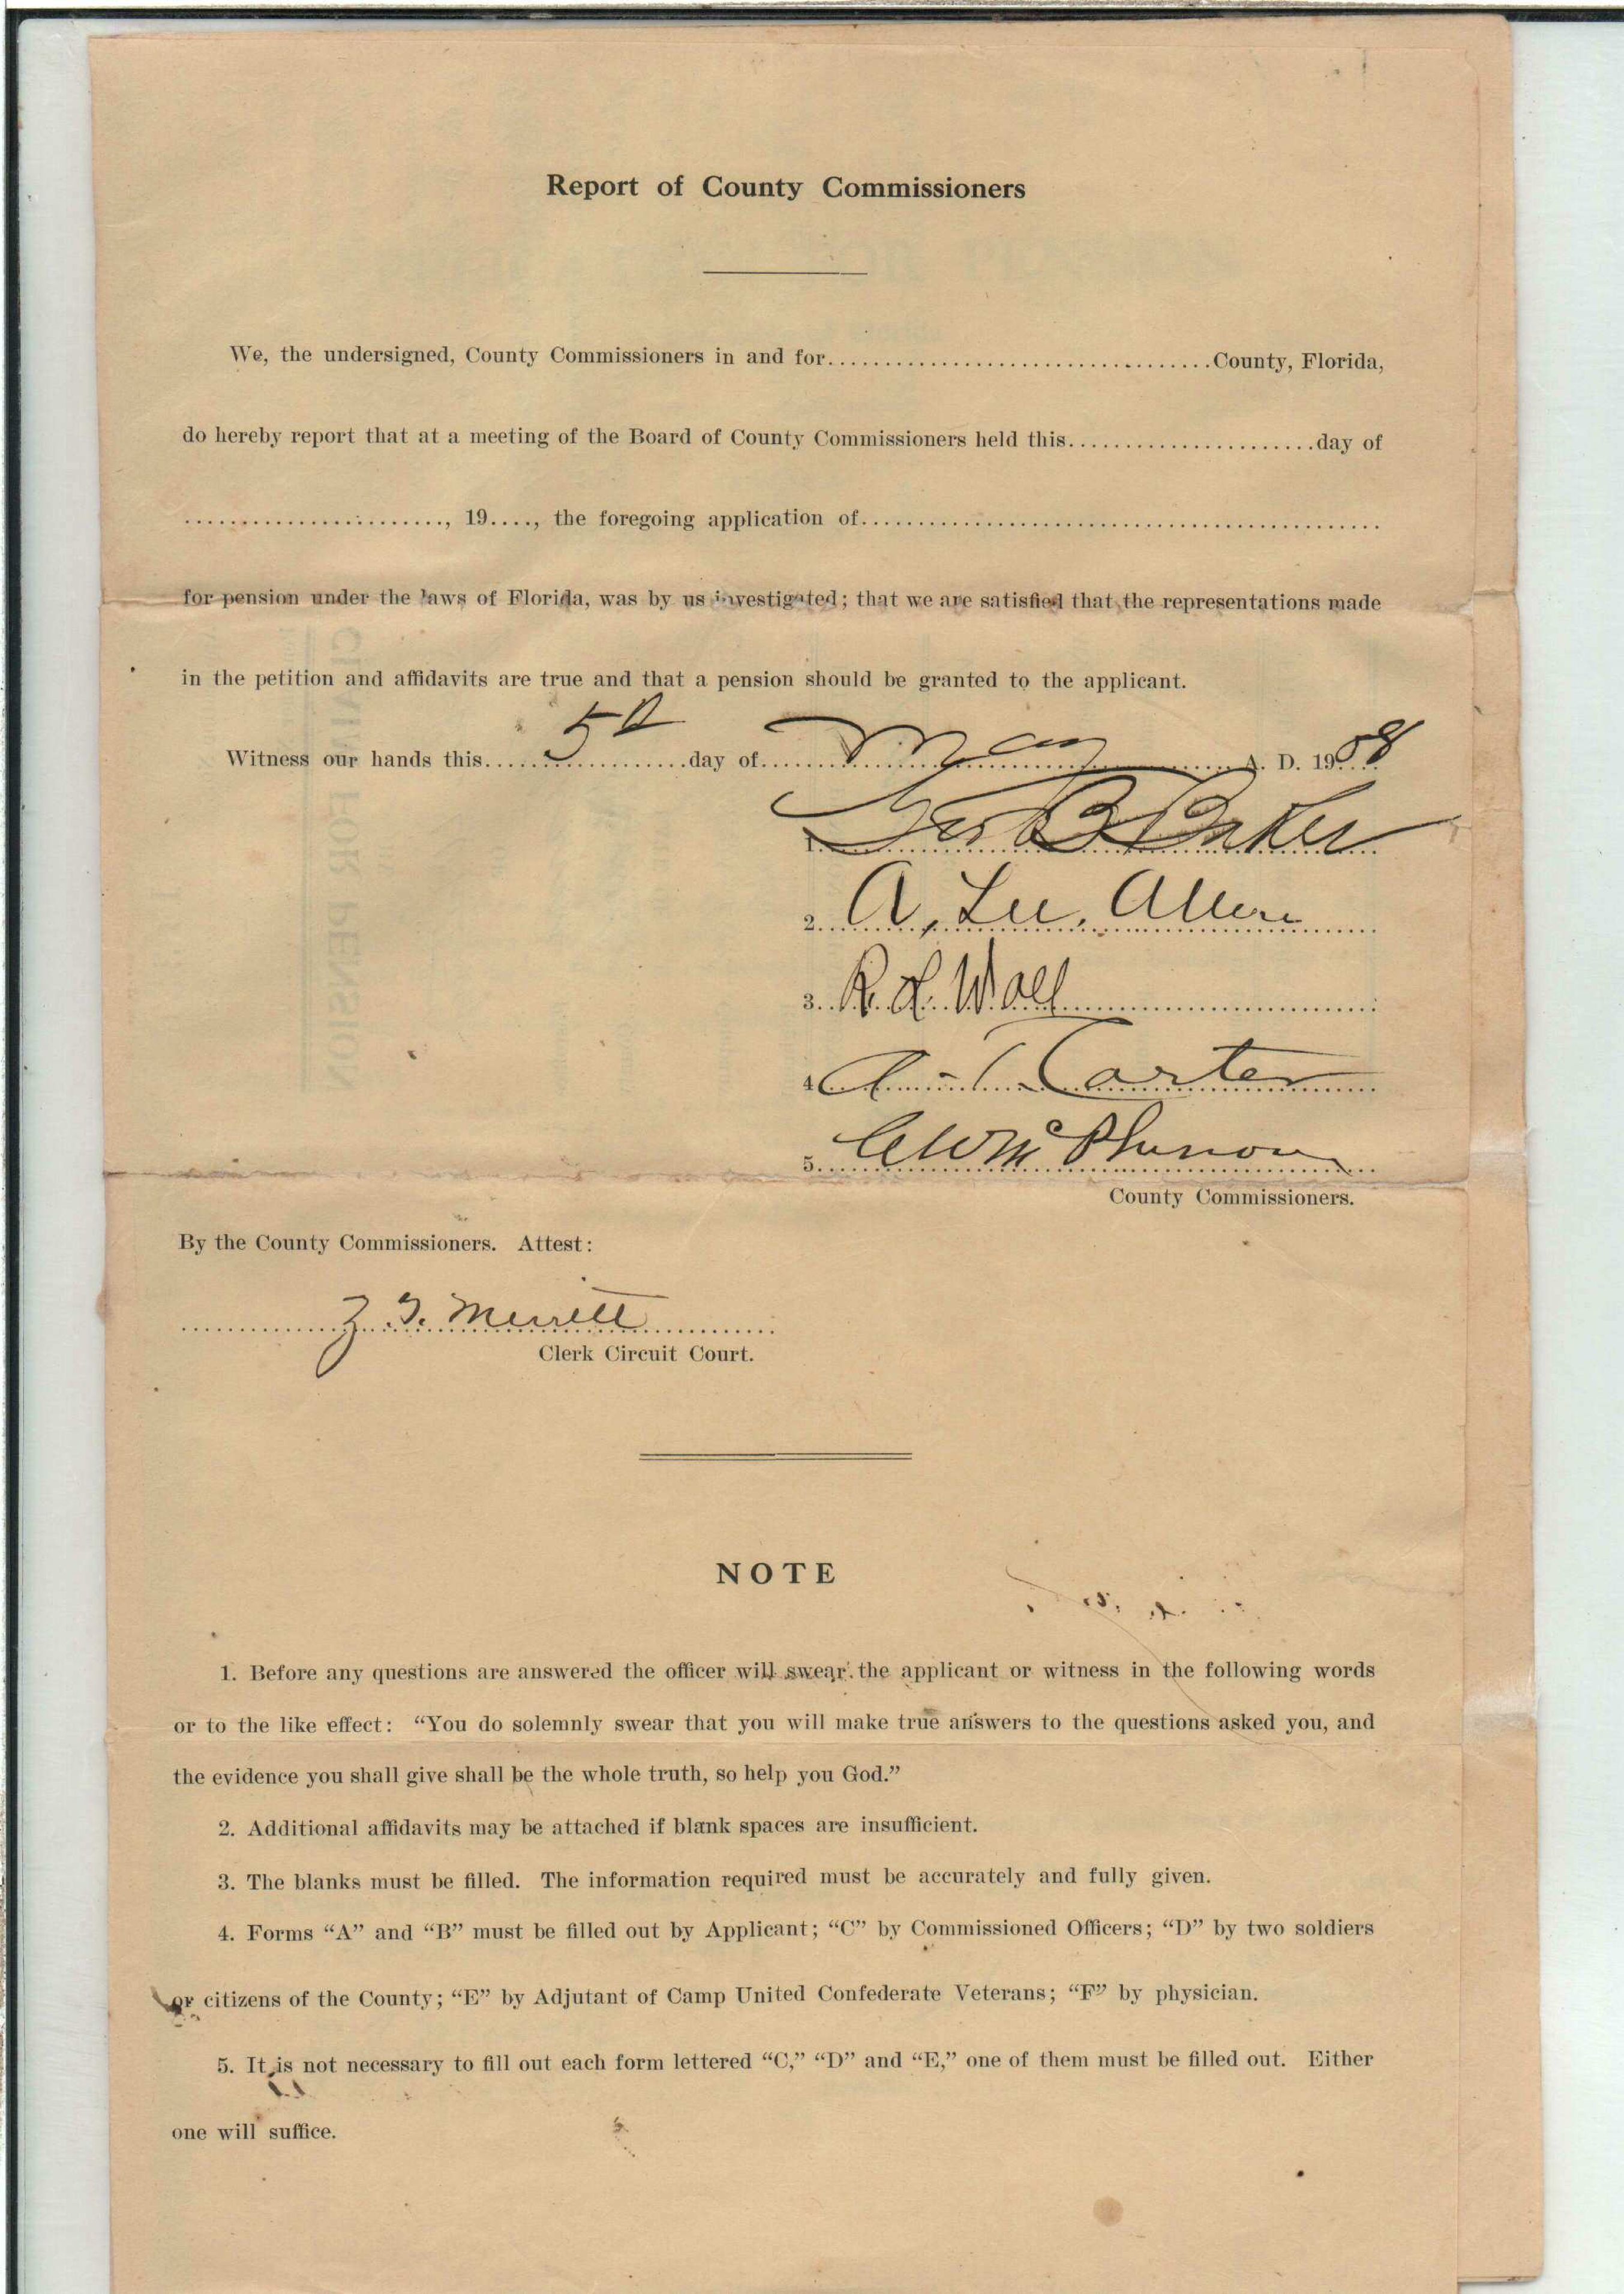 Report of County Commissioners
We, the undersigned, County Commissioners in and for........................................County, Florida,
do hereby report that at a meeting of the Board of County Commissioners held this........................day of
........................, 19...., the foregoing application of..................................................
for pension under the laws of Florida, was by us investigated; that we are satisfied that the representations made
in the petition and affidavits are true and that a pension should be granted to the applicant.
Witness our hands this 5th day of May A. D. 1908
1. Jas B Baker
2. A, Lee, Allen
3. R. H. Wall
4. Carter
5. McPherson
County Commissioners.
By the County Commissioners. Attest:
Z. T. Merritt
Clerk Circuit Court.
NOTE
1. Before any questions are answered the officer will swear the applicant or witness in the following words
or to the like effect: “You do solemnly swear that you will make true answers to the questions asked you, and
the evidence you shall give shall be the whole truth, so help you God.”
2. Additional affidavits may be attached if blank spaces are insufficient.
3. The blanks must be filled. The information required must be accurately and fully given.
4. Forms “A” and “B” must be filled out by Applicant; “C” by Commissioned Officers; “D” by two soldiers
or citizens of the County; “E” by Adjutant of Camp United Confederate Veterans; “F” by physician.
5. It is not necessary to fill out each form lettered “C,” “D” and “E,” one of them must be filled out. Either
one will suffice.